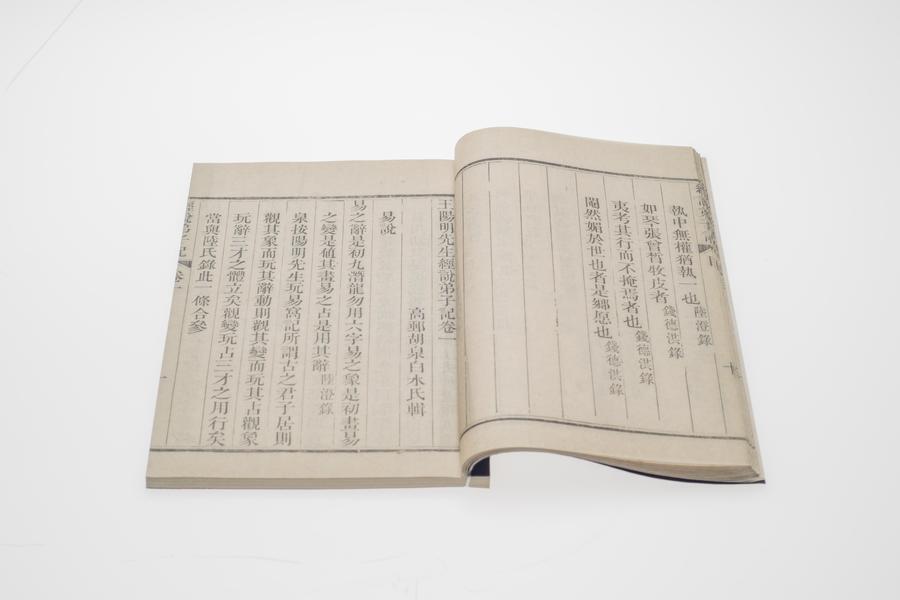 執中無權猶執一也 陸澄錄
如琴張曾晳牧皮者 錢德洪錄
夷考其行而不掩焉者也 錢德洪錄
閹然媚於世也者是鄉愿也 錢德洪錄
王陽明先生經說弟子記卷一
高郵胡泉白水氏輯
易說
易之辭是初九潛龍勿用六字易之象是初畫易
之變是值其畫易之占是用其辭 陸澄錄
泉按陽明先生玩易窩記所謂古之君子居則
觀其象而玩其辭動則觀其變而玩其占觀象
玩辭三才之體立矣觀變玩占三才之用行矣
當與陸氏錄此一條合參
卷一